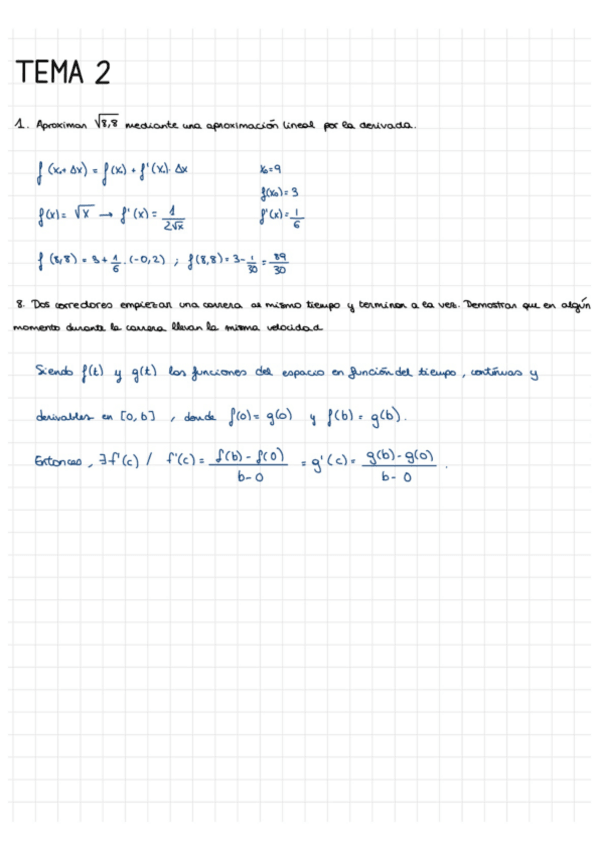 TEMA 2
1. Aproximar √8,8 mediante una aproximación lineal por la derivada.
f(x₀+Δx) = f(x₀) + f'(x₀)·Δx
x₀=9
f(x₀)=3
f(x)= √x → f'(x)= 1/(2√x)
f'(x)= 1/6
f(8,8) = 3+ 1/6 ·(-0,2) ; f(8,8)= 3- 1/30 = 89/30
8. Dos corredores empiezan una carrera al mismo tiempo y terminan a la vez. Demostrar que en algún
momento durante la carrera llevan la misma velocidad
Siendo f(t) y g(t) las funciones del espacio en función del tiempo, continuas y
derivables en [0,b] , donde f(0)= g(0) y f(b)= g(b).
Entonces, ∃ f'(c) / f'(c)= (f(b)-f(0))/(b-0) = g'(c)= (g(b)-g(0))/(b-0) .